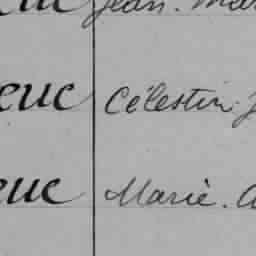 Jean. Mar
euc Célestin. J
euc Marie. A